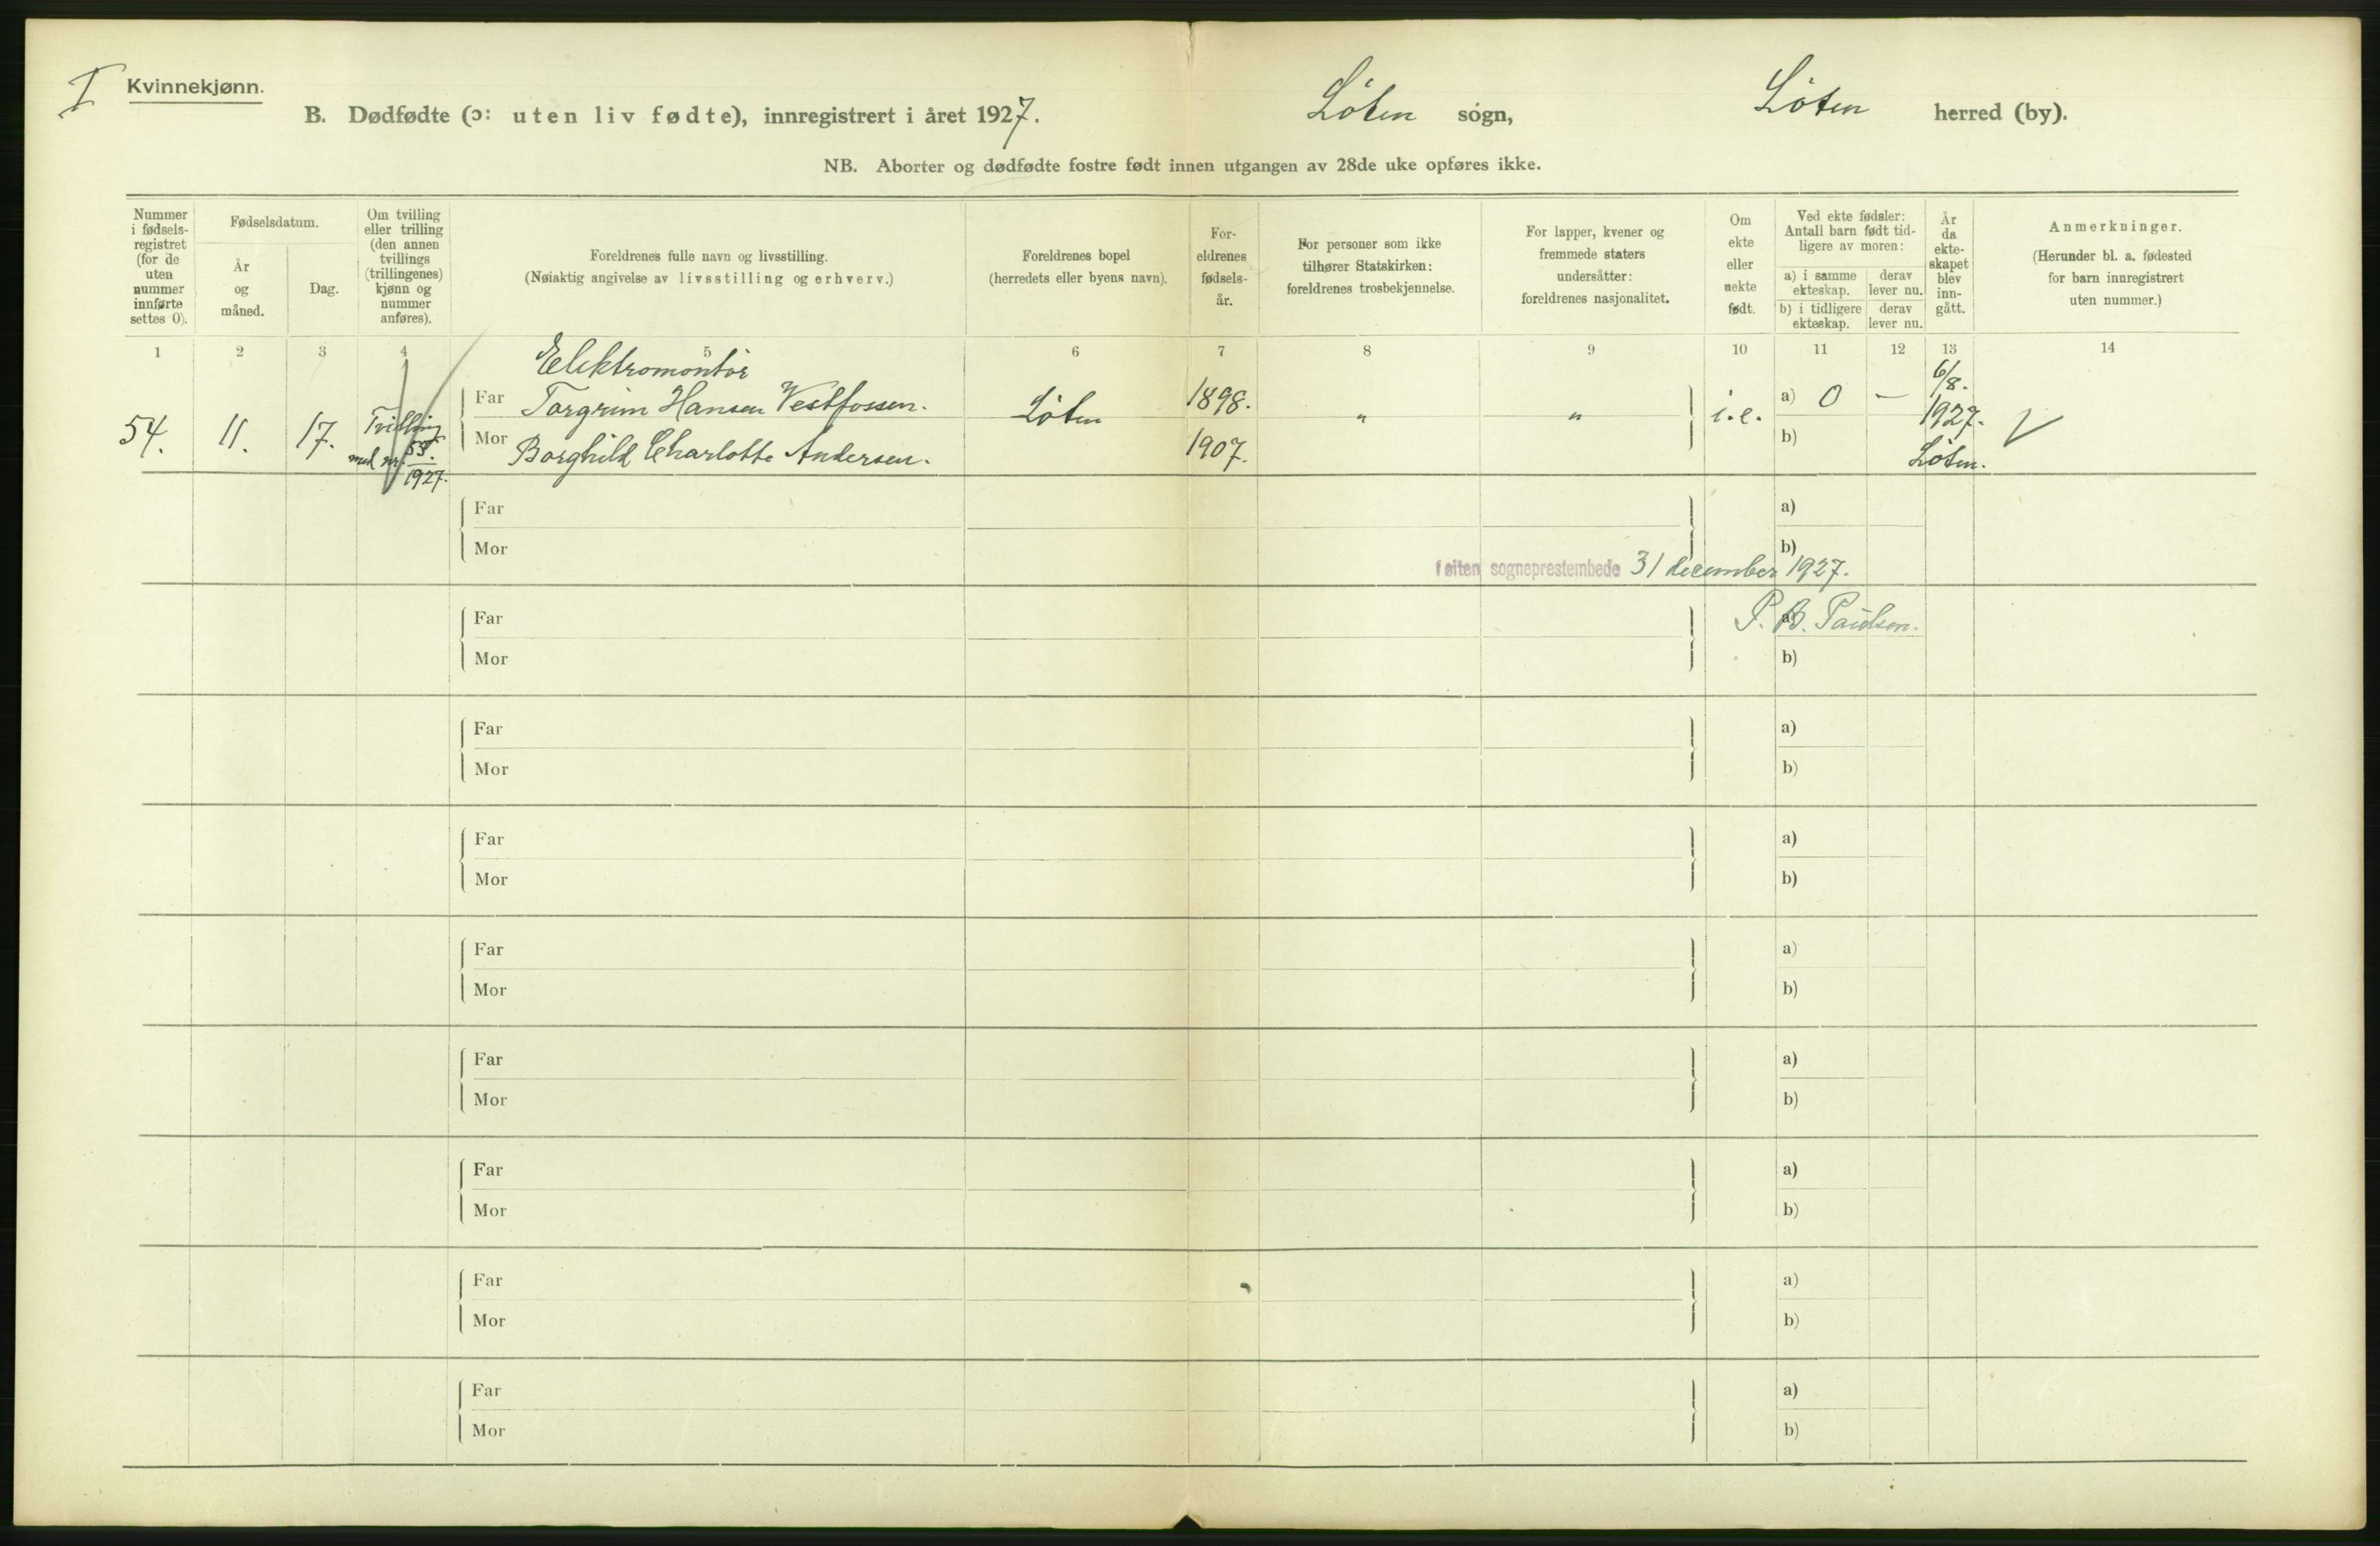 I
Kvinnekjønn.
B. Dødfødte (ɔ: uten liv fødte), innregistrert i året 1927. Løten sogn, Løten herred (by).
NB. Aborter og dødfødte fostre født innen utgangen av 28de uke opføres ikke.
Nummer
i fødsels-
registret
(for de
uten
nummer
innførte
settes 0).
Fødselsdatum.
År
og
måned.
Dag.
Om tvilling
eller trilling
(den annen
tvillings
(trillingenes)
kjønn og
nummer
anføres).
Foreldrenes fulle navn og livsstilling.
(Nøiaktig angivelse av livsstilling og erhverv.)
Foreldrenes bopel
(herredets eller byens navn).
For-
eldrenes
fødsels-
år.
For personer som ikke
tilhører Statskirken:
foreldrenes trosbekjennelse.
For lapper, kvener og
fremmede staters
undersåtter:
foreldrenes nasjonalitet.
Om
ekte
eller
uekte
født.
Ved ekte fødsler:
Antall barn født tid-
ligere av moren:
a) i samme
ekteskap.
derav
lever nu.
b) i tidligere
ekteskap.
derav
lever nu.
År
da
ekte-
skapet
blev
inn-
gått.
Anmerkninger.
(Herunder bl. a. fødested
for barn innregistrert
uten nummer.)
1 2 3 4 5 6 7 8 9 10 11 12 13 14
Elektromontør
54. 11. 17.
Tvilling
med nr. 55.
1927.
Far Torgrim Hansen Vestfossen. Løten 1898. " " i.e. a) 0 — 6/8.
1927.
Mor Borghild Charlotte Andersen. 1907. b)
Løten.
Far a)
Mor b)
Løiten sogneprestembede 31 december 1927.
P. B. Paulsen.
Far a)
Mor b)
Far a)
Mor b)
Far a)
Mor b)
Far a)
Mor b)
Far a)
Mor b)
Far a)
Mor b)
Far a)
Mor b)
Far a)
Mor b)